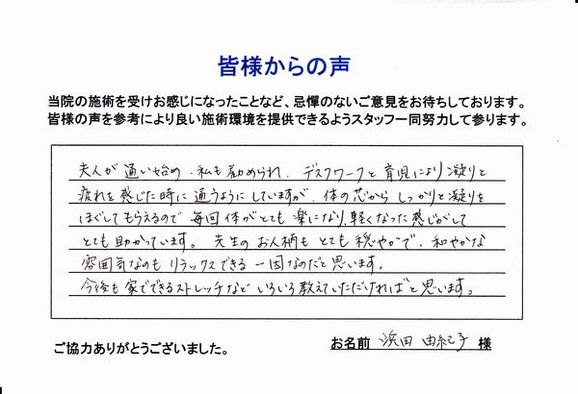 皆様からの声
当院の施術を受けお感じになったことなど、忌憚のないご意見をお待ちしております。
皆様の声を参考により良い施術環境を提供できるようスタッフ一同努力して参ります。
夫人が通い始め、私も勧められ、デスクワークと育児により凝りと
疲れを感じた時に通うようにしていますが、体の芯からしっかりと凝りを
ほぐしてもらえるので毎回体がとても楽になり、軽くなった感じがして
とても助かっています。先生のお人柄もとても穏やかで、和やかな
雰囲気なのもリラックスできる一因なのだと思います。
今後も家でできるストレッチなどいろいろ教えていただければと思います。
お名前 浜田 由紀子 様
ご協力ありがとうございました。